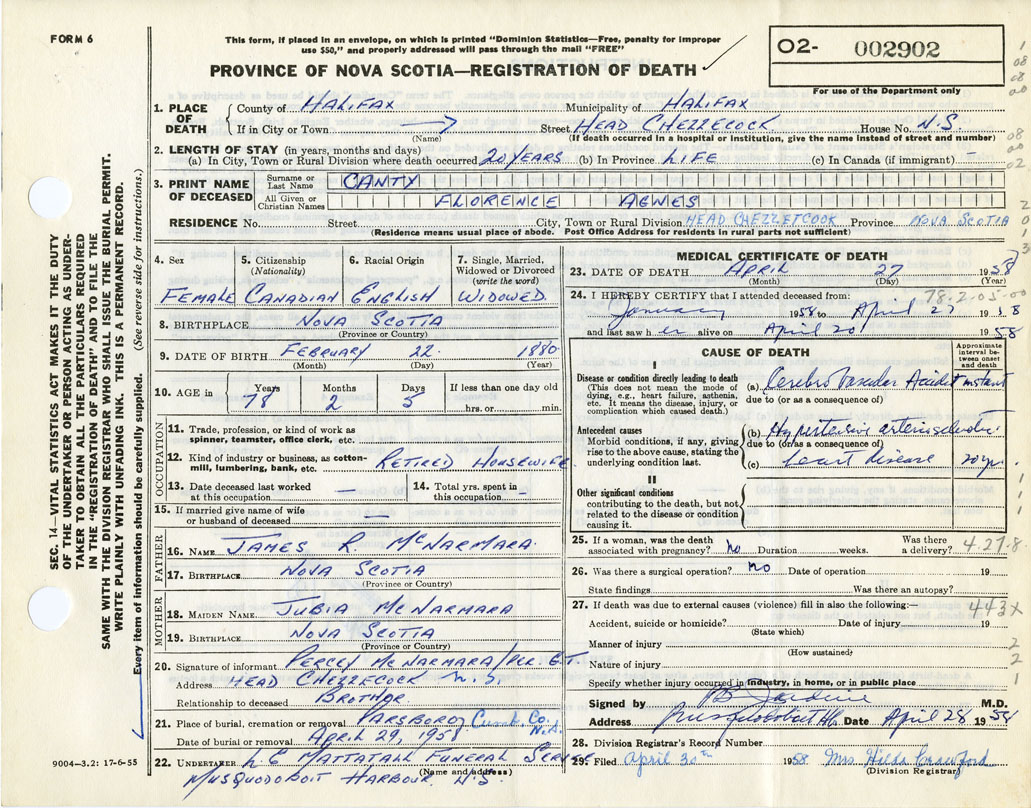 FORM 6
This form, if placed in an envelope, on which is printed "Dominion Statistics—Free, penalty for improper
use $50," and properly addressed will pass through the mail "FREE"
PROVINCE OF NOVA SCOTIA—REGISTRATION OF DEATH
02- 002902
For use of the Department only
1. PLACE OF DEATH
County of HALIFAX Municipality of HALIFAX
If in City or Town Street HEAD CHEZZECOCK House No. N.S.
(Name) (If death occurred in a hospital or institution, give the name instead of street and number)
2. LENGTH OF STAY (in years, months and days)
(a) In City, Town or Rural Division where death occurred 20 YEARS (b) In Province LIFE (c) In Canada (if immigrant) —
3. PRINT NAME OF DECEASED
Surname or Last Name CANTY
All Given or Christian Names FLORENCE AGNES
RESIDENCE No. Street City, Town or Rural Division HEAD CHEZZETCOOK Province NOVA SCOTIA
(Residence means usual place of abode. Post Office Address for residents in rural parts not sufficient)
4. Sex FEMALE
5. Citizenship (Nationality) CANADIAN
6. Racial Origin ENGLISH
7. Single, Married, Widowed or Divorced (write the word) WIDOWED
8. BIRTHPLACE NOVA SCOTIA
(Province or Country)
9. DATE OF BIRTH FEBRUARY 22 1880
(Month) (Day) (Year)
10. AGE in Years 78 Months 2 Days 5 If less than one day old hrs. or min.
OCCUPATION
11. Trade, profession, or kind of work as spinner, teamster, office clerk, etc.
12. Kind of industry or business, as cotton-mill, lumbering, bank, etc. RETIRED HOUSEWIFE
13. Date deceased last worked at this occupation —
14. Total yrs. spent in this occupation —
15. If married give name of wife or husband of deceased —
FATHER
16. NAME JAMES R. MCNARMARA
17. BIRTHPLACE NOVA SCOTIA
(Province or Country)
MOTHER
18. MAIDEN NAME JUBIA MCNARMARA
19. BIRTHPLACE NOVA SCOTIA
(Province or Country)
20. Signature of informant PERCEY MCNARMARA/PER. E.T.
Address HEAD CHEZZECOCK N.S.
Relationship to deceased BROTHOR
21. Place of burial, cremation or removal PARSBORO Cumb. Co.
Date of burial or removal APRIL 29, 1958
22. UNDERTAKER L E MATTATALL FUNERAL SERVICE
(Name and address)
MUSQUODOBOIT HARBOUR, N.S.
MEDICAL CERTIFICATE OF DEATH
23. DATE OF DEATH APRIL 27 1958
(Month) (Day) (Year)
78-2-05-00
24. I HEREBY CERTIFY that I attended deceased from:
January 1958 to April 27 1958
and last saw her alive on April 20 1958
CAUSE OF DEATH
Approximate interval between onset and death
I
Disease or condition directly leading to death
(This does not mean the mode of dying, e.g., heart failure, asthenia, etc. It means the disease, injury, or complication which caused death.)
(a) Cerebro Vascular Accident instant
due to (or as a consequence of)
Antecedent causes
Morbid conditions, if any, giving rise to the above cause, stating the underlying condition last.
(b) Hypertensive arteriosclerotic
due to (or as a consequence of)
(c) heart disease 20 yrs
II
Other significant conditions
contributing to the death, but not related to the disease or condition causing it.
25. If a woman, was the death associated with pregnancy? No Duration weeks. Was there a delivery? 4-27-8
26. Was there a surgical operation? No Date of operation 19
State findings Was there an autopsy?
27. If death was due to external causes (violence) fill in also the following:— 443X
Accident, suicide or homicide? Date of injury 19
(State which)
Manner of injury
(How sustained)
Nature of injury
Specify whether injury occurred in industry, in home, or in public place
Signed by PB Jardine M.D.
Address Musquodoboit Hb. Date April 28 1958
28. Division Registrar's Record Number
29. Filed April 30th 1958 Mrs Hilda Crawford
(Division Registrar)
SEC. 14—VITAL STATISTICS ACT MAKES IT THE DUTY
OF THE UNDERTAKER OR PERSON ACTING AS UNDER-
TAKER TO OBTAIN ALL THE PARTICULARS REQUIRED
IN THE "REGISTRATION OF DEATH" AND TO FILE THE
SAME WITH THE DIVISION REGISTRAR WHO SHALL ISSUE THE BURIAL PERMIT.
WRITE PLAINLY WITH UNFADING INK. THIS IS A PERMANENT RECORD.
Every item of information should be carefully supplied. (See reverse side for instructions.)
9004-3.2: 17-6-55